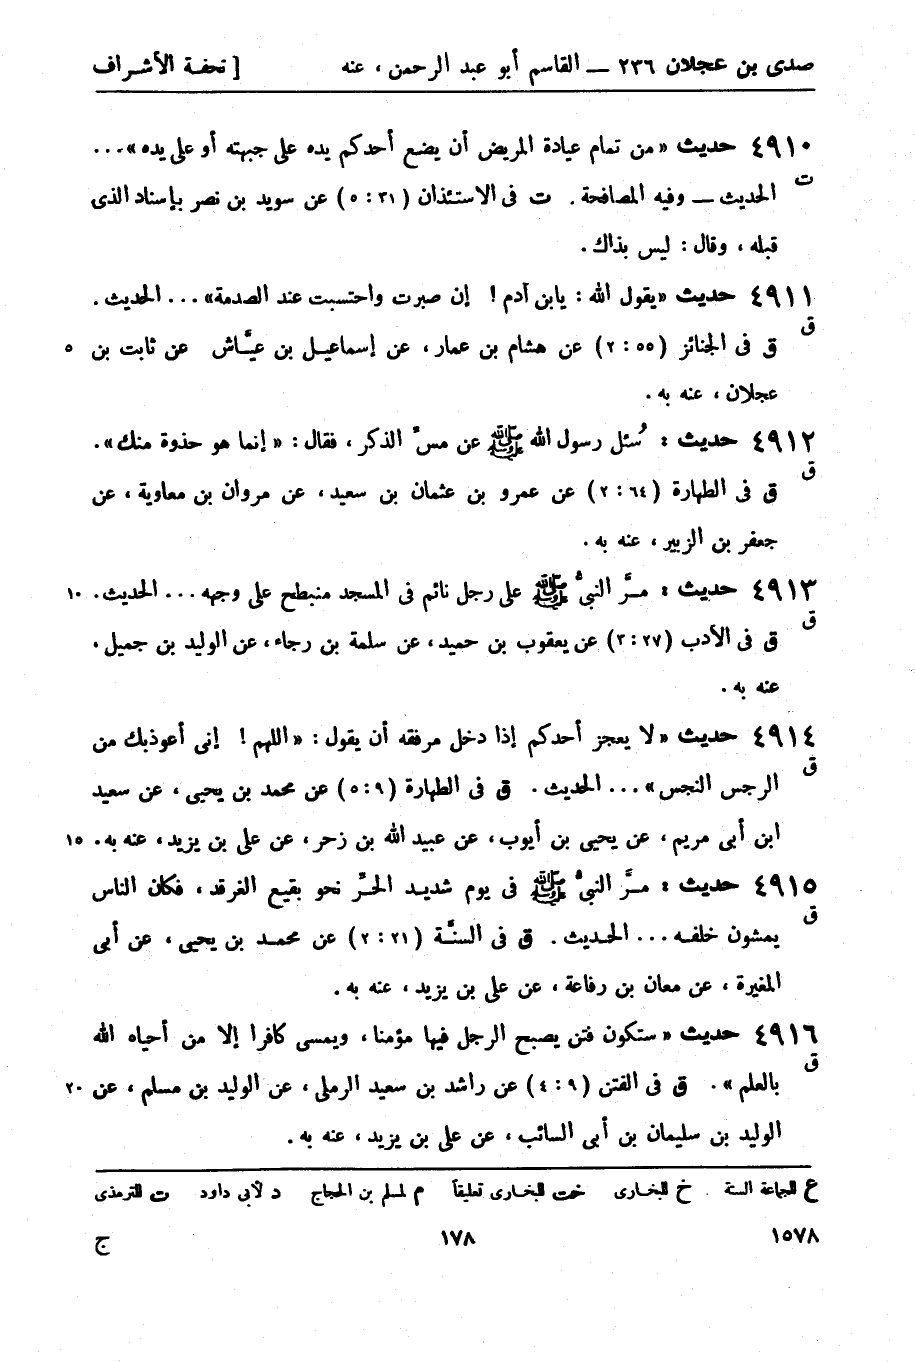 صدى بن عجلان ٢٣٦ ــ القاسم أبو عبد الرحمن ، عنه [ تحفة الأشراف
٤٩١٠ حديث «من تمام عيادة المريض أن يضع أحدكم يده على جبهته أو على يده»...
ت الحديث ــ وفيه المصافحة . ت فى الاستئذان (٣١ : ٥) عن سويد بن نصر بإسناد الذى
قبله ، وقال : ليس بذاك .
٤٩١١ حديث «يقول الله : يابن آدم ! إن صبرت واحتسبت عند الصدمة»... الحديث .
ق ق فى الجنائز (٥٥ : ٢) عن هشام بن عمار ، عن إسماعيل بن عيَّاش عن ثابت بن ٥
عجلان ، عنه به .
٤٩١٢ حديث : سُئل رسول الله ﷺ عن مسّ الذكر ، فقال : « إنما هو حذوة منك» .
ق ق فى الطهارة (٦٤ : ٢) عن عمرو بن عثمان بن سعيد ، عن مروان بن معاوية ، عن
جعفر بن الزبير ، عنه به .
٤٩١٣ حديث : مرَّ النبىُّ ﷺ على رجل نائم فى المسجد منبطح على وجهه... الحديث . ١٠
ق ق فى الأدب (٢٧ : ٣) عن يعقوب بن حميد ، عن سلمة بن رجاء ، عن الوليد بن جميل ،
عنه به .
٤٩١٤ حديث «لا يعجز أحدكم إذا دخل مرفقه أن يقول : «اللهم ! إنى أعوذبك من
ق الرجس النجس»... الحديث . ق فى الطهارة (٩ : ٥) عن محمد بن يحيى ، عن سعيد
ابن أبى مريم ، عن يحيى بن أيوب ، عن عبيد الله بن زحر ، عن على بن يزيد ، عنه به . ١٥
٤٩١٥ حديث : مرَّ النبىُّ ﷺ فى يوم شديد الحرِّ نحو بقيع الغرقد ، فكان الناس
ق يمشون خلفه... الحديث . ق فى السنَّة (٢١ : ٢) عن محمد بن يحيى ، عن أبى
المغيرة ، عن معان بن رفاعة ، عن على بن يزيد ، عنه به .
٤٩١٦ حديث «ستكون فتن يصبح الرجل فيها مؤمنا ، ويمسى كافرا إلا من أحياه الله
ق بالعلم» . ق فى الفتن (٩ : ٤) عن راشد بن سعيد الرملى ، عن الوليد بن مسلم ، عن ٢٠
الوليد بن سليمان بن أبى السائب ، عن على بن يزيد ، عنه به .
ع للجماعة الستة خ للبخارى خت للبخارى تعليقاً م لمسلم بن الحجاج د لأبى داود ت للترمذى
١٥٧٨ ١٧٨ ج